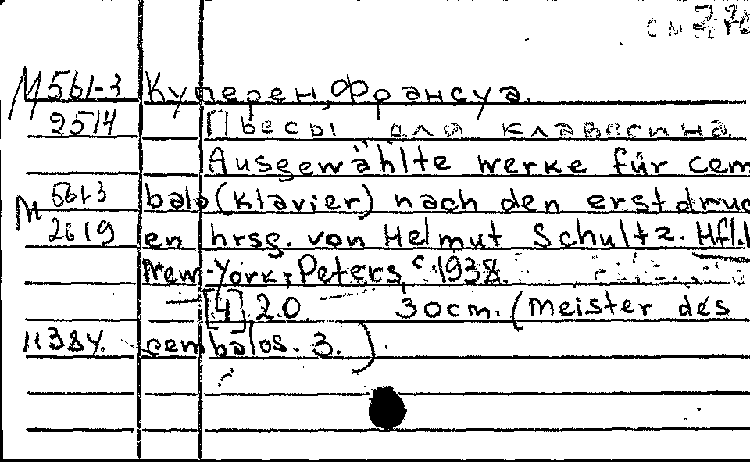 см
М 561-3 Куперен, Франсуа.
2514 Пьесы для клавесина
Ausgewählte werke für cem
М 561-3 balo (Klavier) nach den erstdruc
2619 en hrsg. von Helmut Schultz. Hft.1
New-York, Peters, c 1938.
[4], 20 30cm. (Meister des
11384. cembalos. 3.).